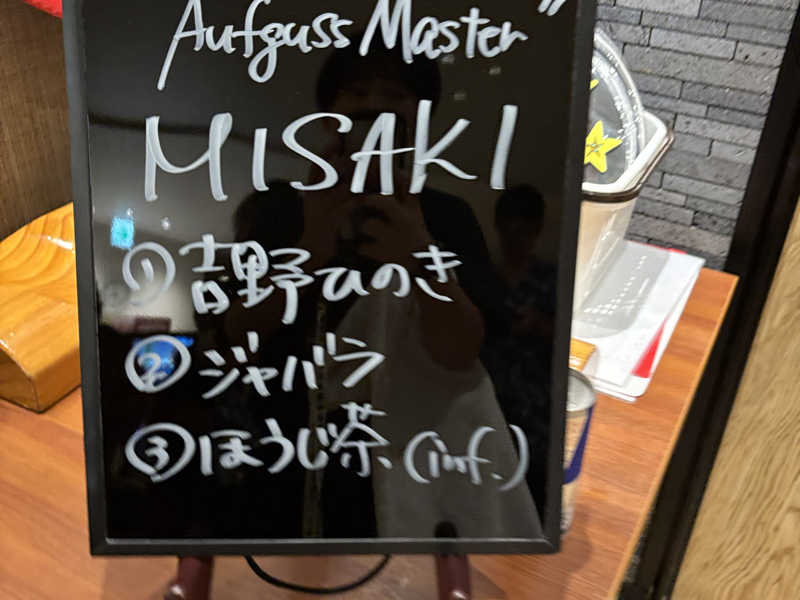 Aufguss Master"
MISAKI
① 吉野ひのき
② ジャバラ
③ ほうじ茶 (inf.)